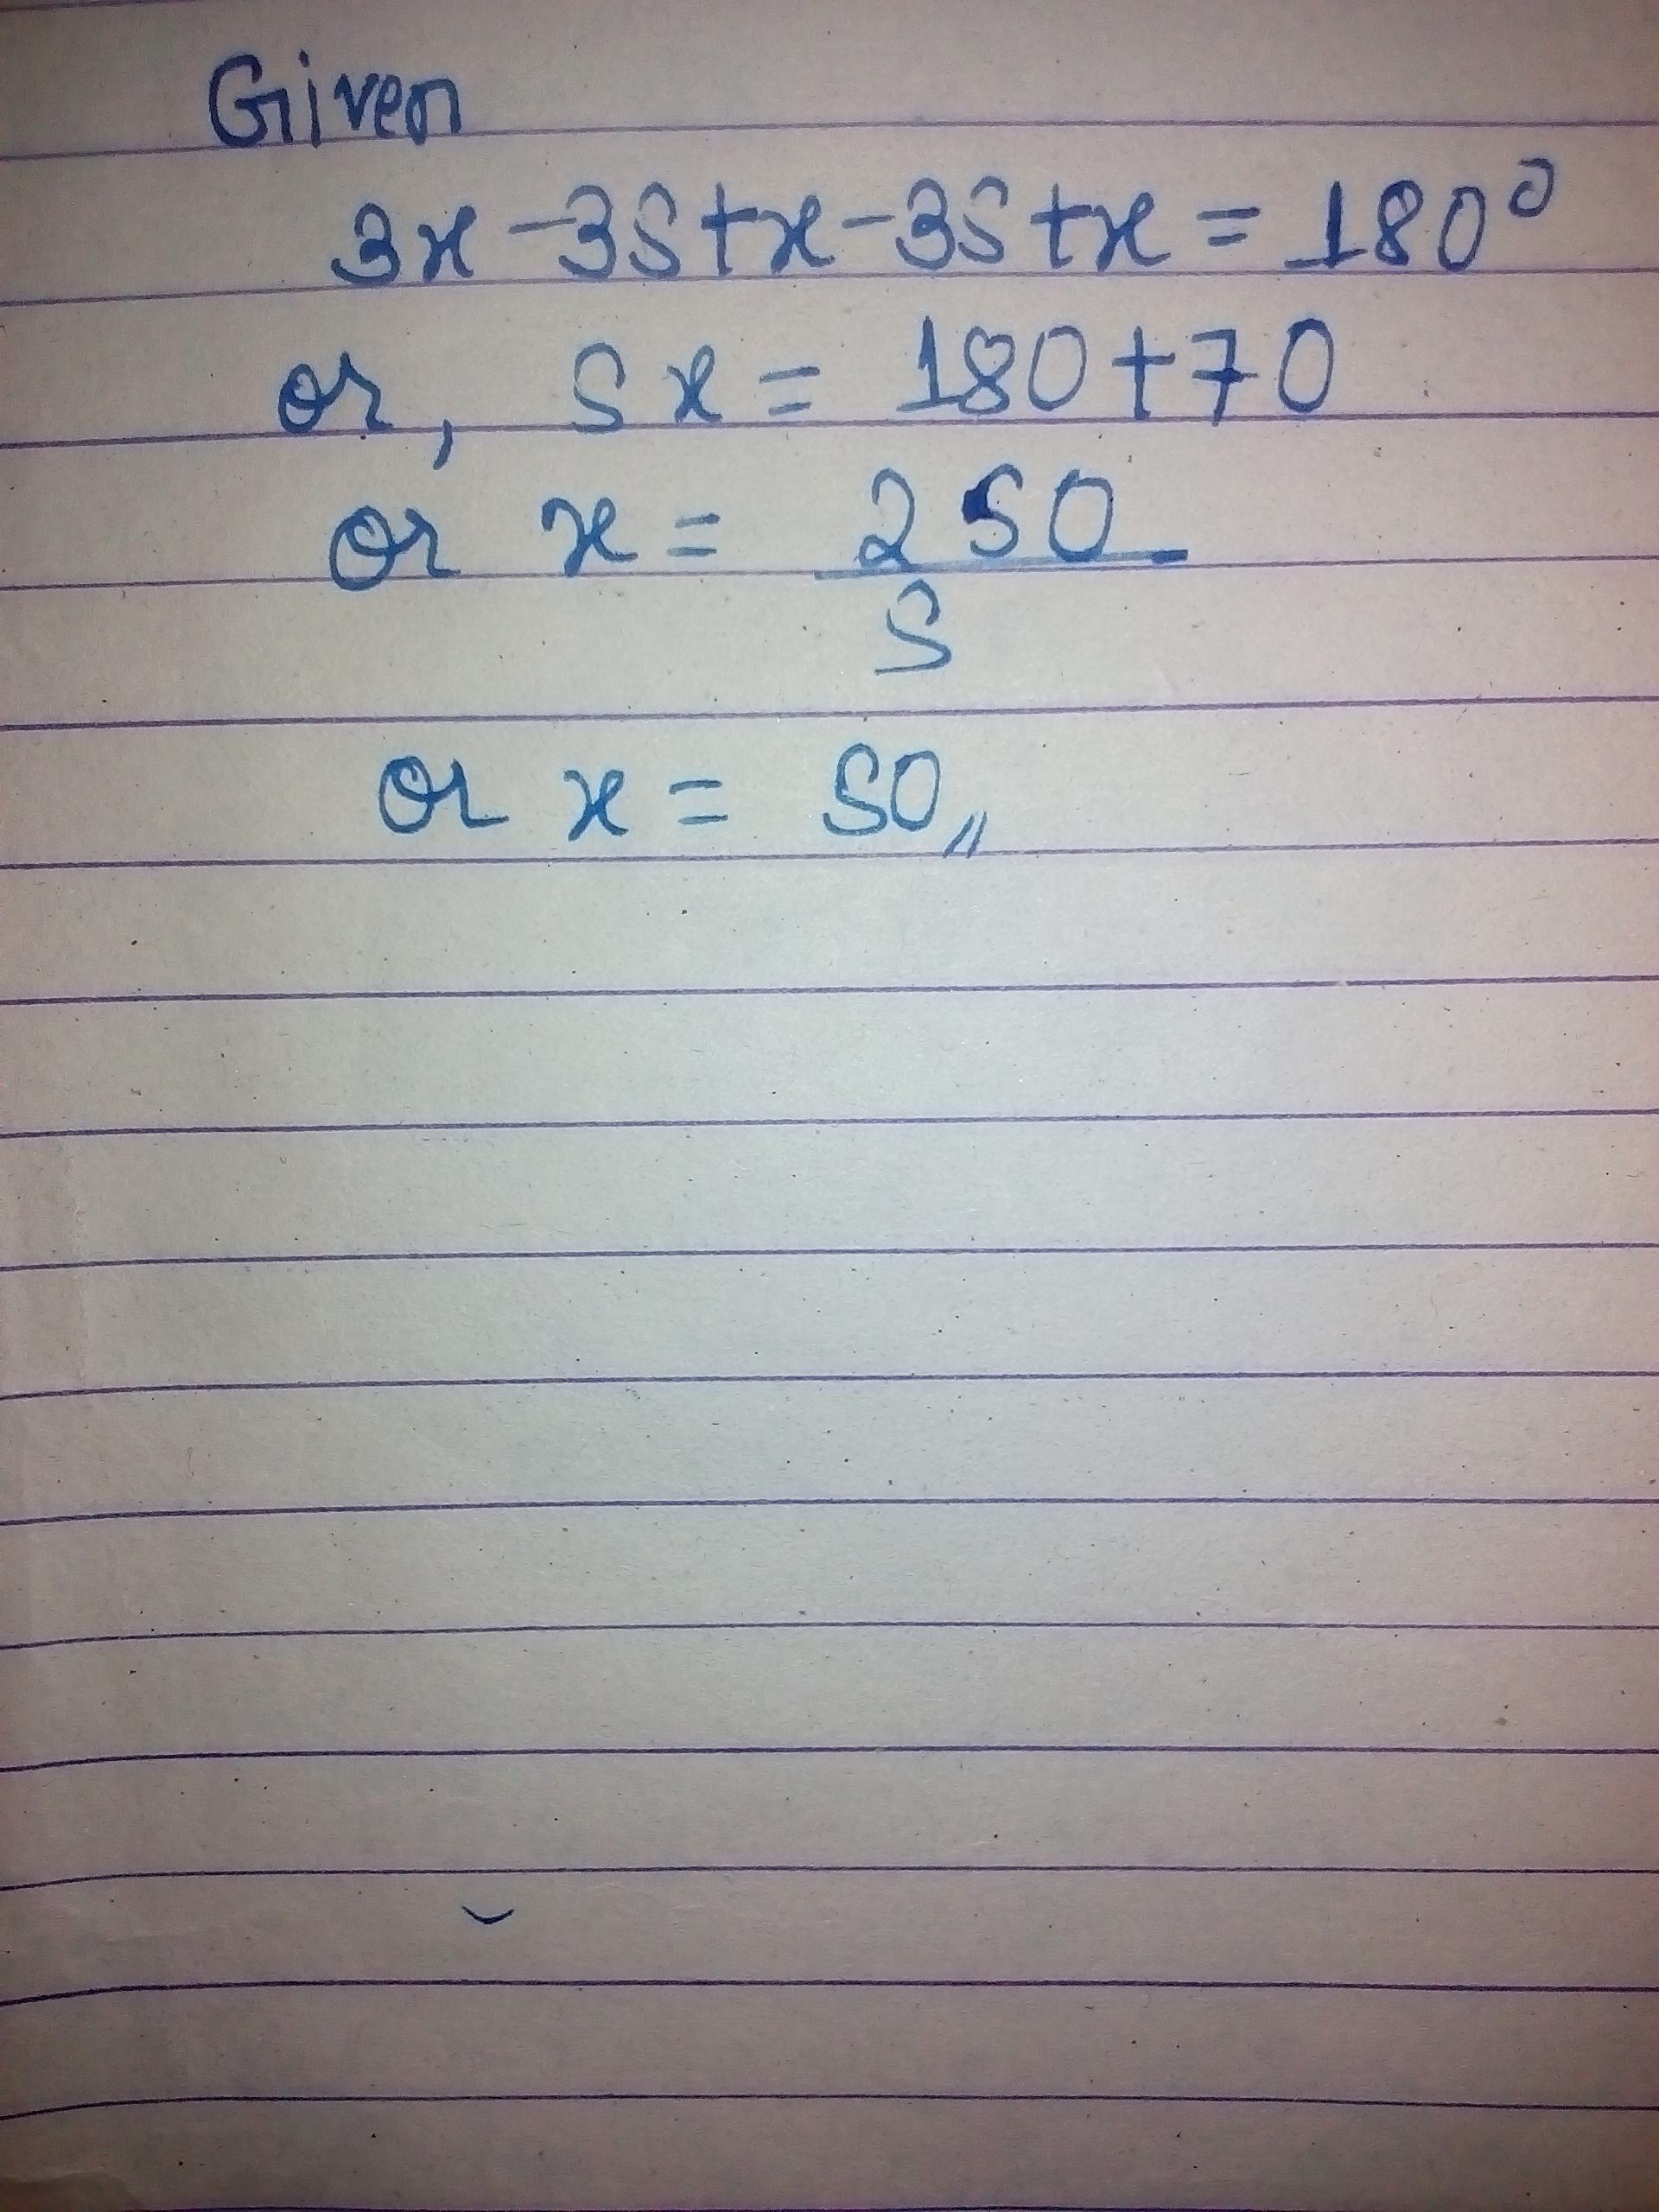 Given
3x - 35 + x - 35 + x = 180⁰
or, 5x = 180 + 70
or x = 250
5
or x = 50,,